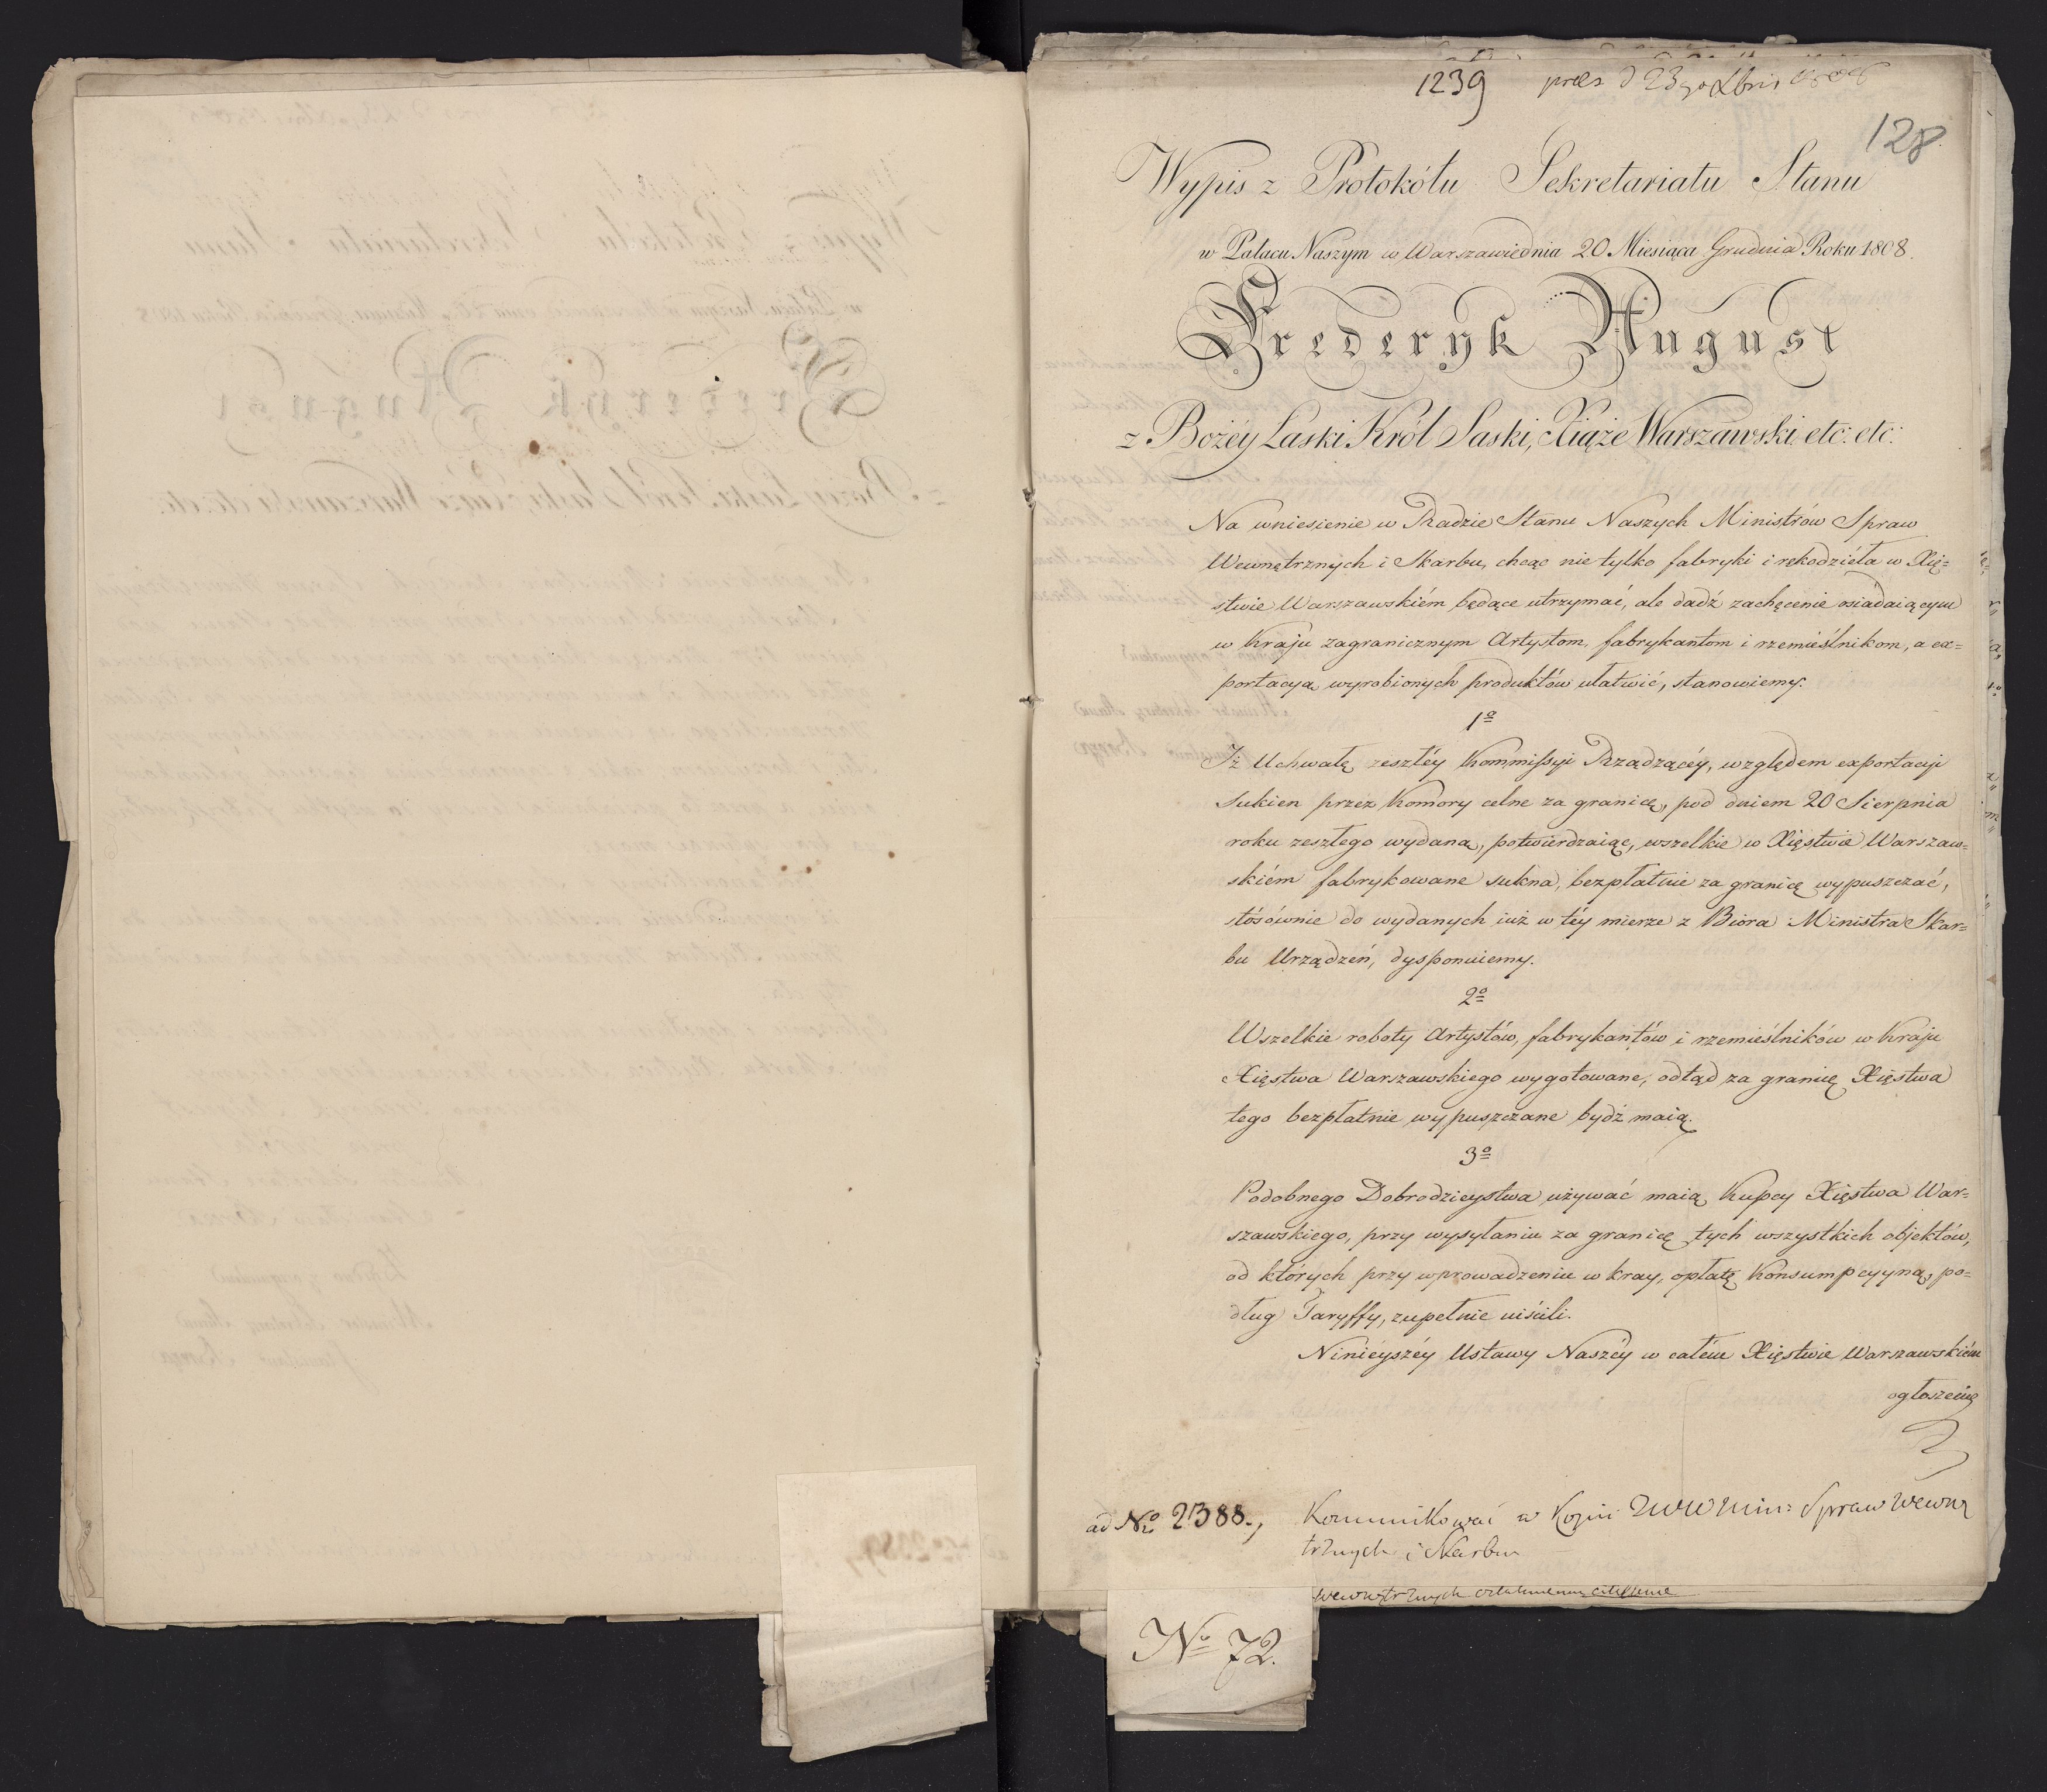 1239 pres d 23go Xbris 1808
128
Wypis z Protokółu Sekretariatu Stanu
w Pałacu Naszym w Warszawie dnia 20 Miesiąca Grudnia Roku 1808.
Frederyk August
z Bożéy Łaski Król Saski, Xiąże Warszawski etc: etc:
Na wniesienie w Radzie Stanu Naszych Ministrów Spraw
Wewnętrznych i Skarbu, chcąc nie tylko fabryki i rękodzieła w Xię=
stwie Warszawskiém będące utrzymać, ale dadź zachęcenie osiadaiącym
w Kraju zagranicznym Artystom, fabrykantom i rzemieślnikom, a ex=
portacyą wyrobionych produktów ułatwić, stanowiemy.
1o
Iż Uchwałę zeszłéy Kommissyi Rządzącéy, względem exportacyi
Sukien przez Komory celne za granicę, pod dniem 20 Sierpnia
roku zeszłego wydaną, potwierdzaiąc, wszelkie w Xięstwie Warszaw=
skiém fabrykowane sukna, bezpłatnie za granicę wypuszczać,
stósównie do wydanych iuż w téy mierze z Biora Ministra Skar=
bu Urządzeń, dysponuiemy.
2o
Wszelkie roboty Artystów, fabrykantów i rzemieślników w Kraju
Xięstwa Warszawskiego wygotowane, odtąd za granicę Xięstwa
tego bezpłatnie wypuszczane bydź maią.
3o
Podobnego Dobrodzieystwa używać maią Kupcy Xięstwa War=
szawskiego, przy wysyłaniu za granicę tych wszystkich objektów,
od których przy wprowadzeniu w kray, opłatę Konsumpcyyną, po=
dług Taryffy, zupełnie uiścili.
Ninieyszéy Ustawy Naszéy w całém Xięstwie Warszawskiém
ogłoszenie
ad No 2388.,
Kommunikować w Kopii WW Min: Spraw Wewnę
trznych i Skarbu
wewnętrznych
No 72.